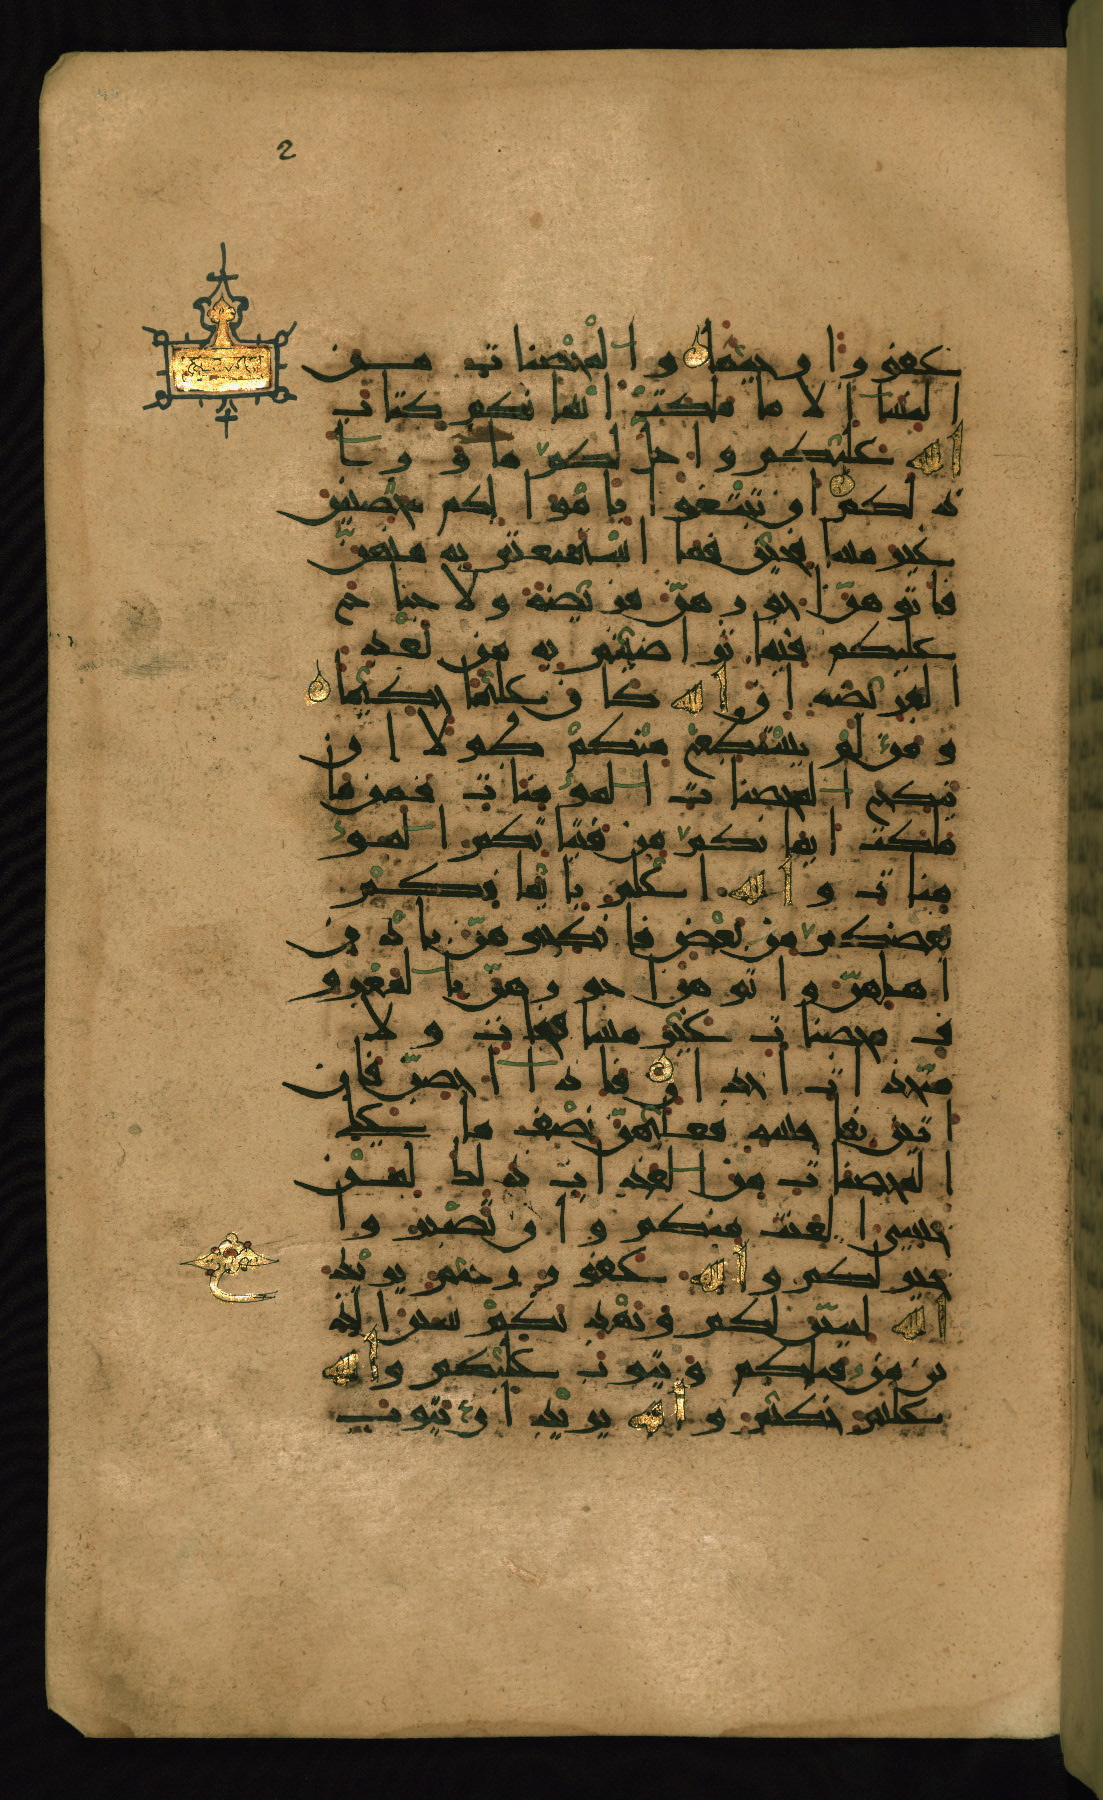 2
غفورا رحيما والمحصنات من
النسا الا ما ملكت ايمانكم كتاب
الله عليكم واحل لكم ما ورا
ذلكم ان تبتغوا باموالكم محصنين
غير مسافحين فما استمتعتم به منهن
فاتوهن اجورهن فريضة ولا جناح
عليكم فيما تراضيتم به من بعد
الفريضة ان الله كان عليما حكيما
ومن لم يستطع منكم طولا ان
ينكح المحصنات المومنات فمن ما
ملكت ايمانكم من فتياتكم المو
منات والله اعلم بايمانكم
بعضكم من بعض فانكحوهن باذن
اهلهن واتوهن اجورهن بالمعرو
ف محصنات غير مسافحات ولا
متخذات اخدان فاذا احصن فان
اتين بفاحشة فعليهن نصف ما على
المحصنات من العذاب ذلك لمن
خشي العنت منكم وان تصبروا
خير لكم والله غفور رحيم يريد
الله ليبين لكم ويهديكم سنن الذ
ين من قبلكم ويتوب عليكم والله
عليم حكيم والله يريد ان يتوب